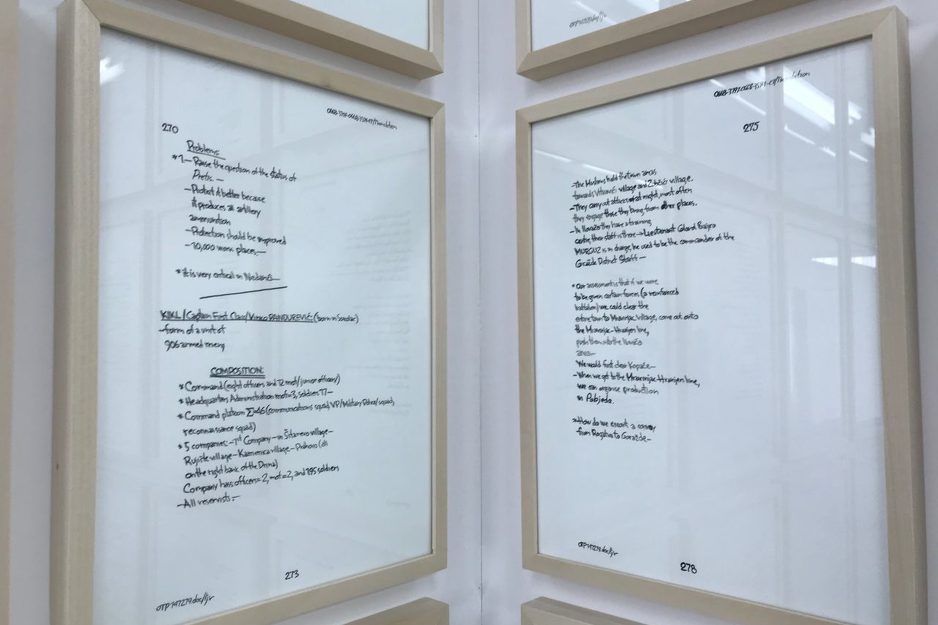 270
Problems:
*1.- Raise the question of the status of
Pretis. -
- Protect it better because
it produces all artillery
ammunition
- Protection should be improved
- 10,000 work places. -
* It is very critical in
KIKL / Captain First Class / Vinko PANDUREVIĆ - (born in Sokolac)
- form of a unit of
906 armed men
COMPOSITION:
* Command (eight officers and 12 mot / junior officers)
* Headquarters Administration mot=3, soldiers 77 -
* Command platoon Σ=46 (communications squad, VP / Military Police / squad,
reconnaissance squad)
* 5 companies: - 1st Company - in Štitarevo village -
Rujište village - Kamenica village - (all
on the right bank of the Drina)
Company has officers = 2, mot = 2, and 795 soldiers
- All reservists. -
273
OTP 147279.doc/ljv
275
- The Muslims hold the town areas
towards village and village.
- They carry out attacks at night, most often
they engage those they bring from other places.
- In they have a training
centre, their staff is there → Lieutenant Colonel
is in charge, he used to be the commander of the
Goražde District Staff -
* Our assessment is that if we were
to be given certain forces (a reinforced
battalion) we could clear the
to village, come out onto
the line,
push them into the
area -
- We would first clear Kopače. -
- When we get to the line,
we can organise production
in Pobjeda.
* How do we escort a convoy
from Rogatica to Goražde -
OTP 147279.doc/ljv
278